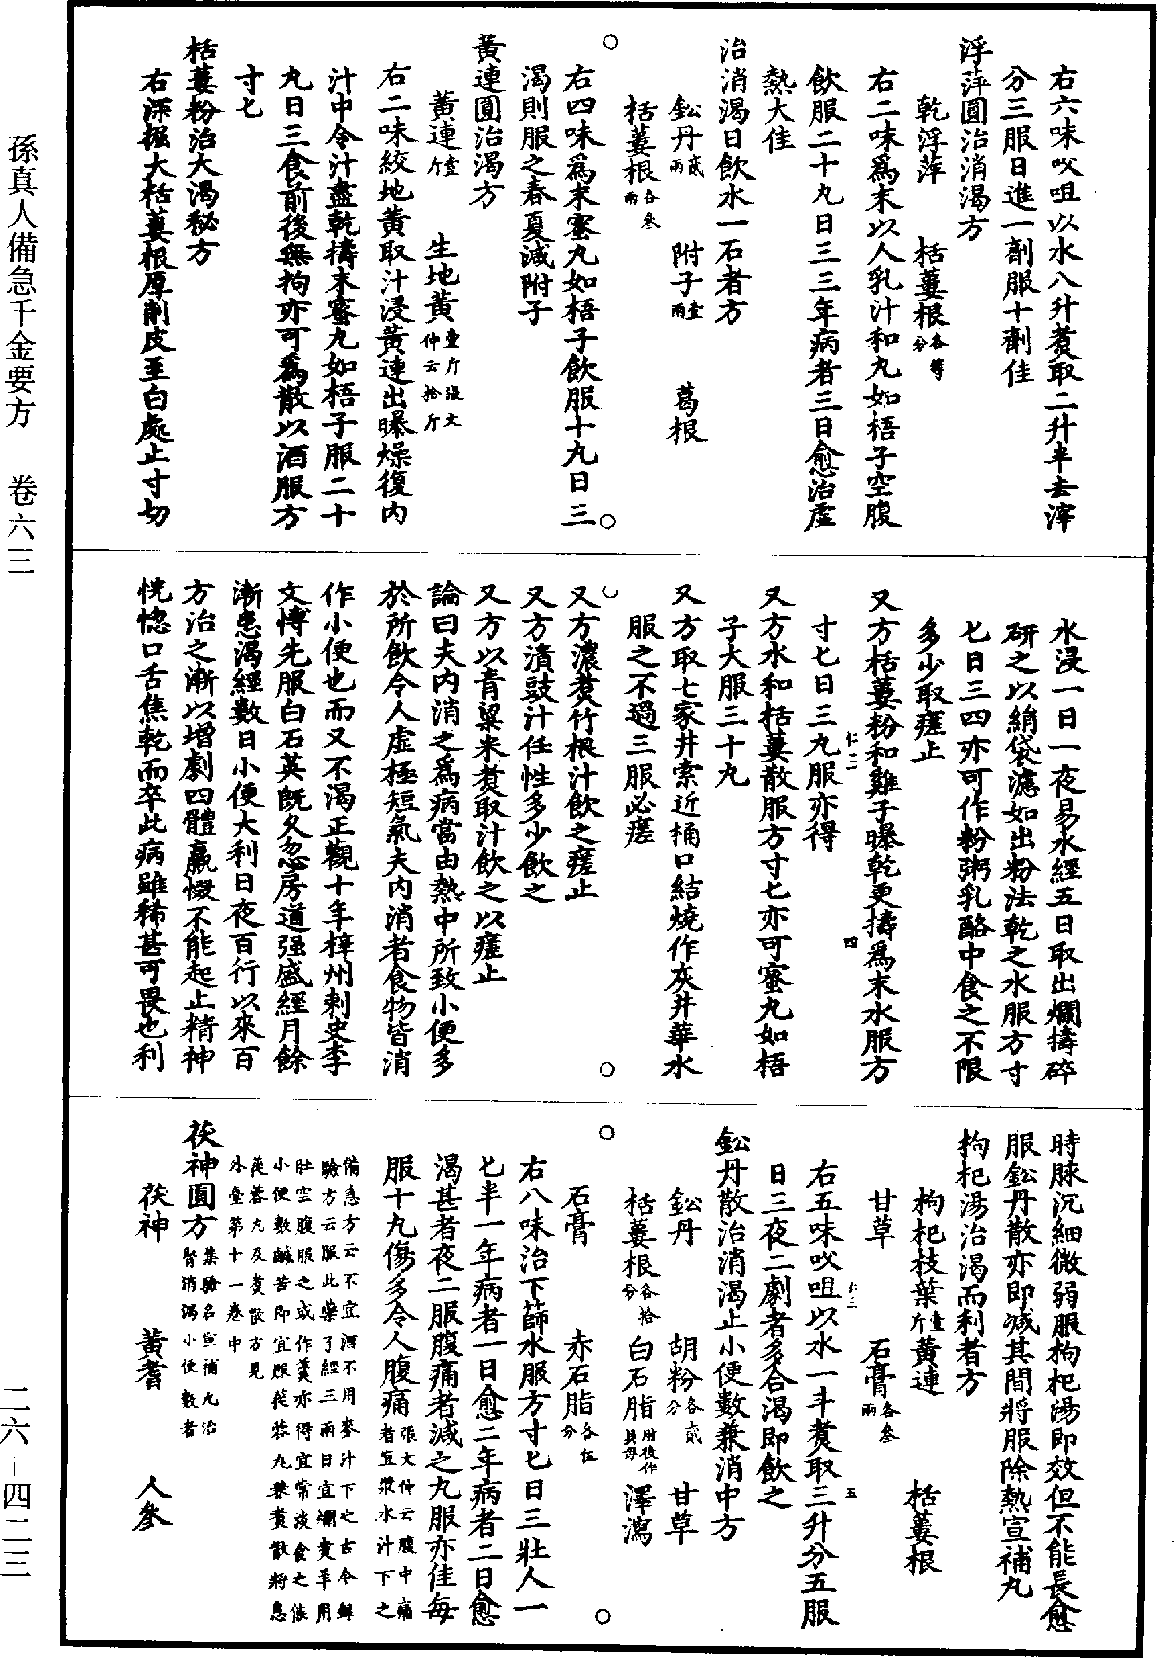 右六味㕮咀以水八升煑取二升半去滓
分三服日進一劑服十劑佳
浮萍圓治消渴方
乾浮萍　栝蔞根各等分
右二味爲末以人乳汁和丸如梧子空腹
飲服二十丸日三三年病者三日愈治虛
熱大佳
治消渴日飲水一石者方
鈆丹貳兩　附子壹兩　葛根
栝蔞根各叁兩
右四味爲末蜜丸如梧子飲服十丸日三
渴則服之春夏減附子
黃連圓治渴方
黃連壹斤　生地黃壹斤張文仲云拾斤
右二味絞地黃取汁浸黃連出曝燥復內
汁中令汁盡乾擣末蜜丸如梧子服二十
丸日三食前後無拘亦可爲散以酒服方
寸七
栝蔞粉治大渴秘方
右深掘大栝蔞根厚削皮至白處止寸切
水浸一日一夜易水經五日取出爛擣碎
研之以絹袋濾如出粉法乾之水服方寸
七日三四亦可作粉粥乳酪中食之不限
多少取瘥止
又方栝蔞粉和雞子曝乾更擣爲末水服方
寸七日三丸服亦得
又方水和栝蔞散服方寸七亦可蜜丸如梧
子大服三十丸
又方取七家井索近桶口結燒作灰井華水
服之不過三服必瘥
又方濃煑竹根汁飲之瘥止
又方漬豉汁任性多少飲之
又方以青粱米煑取汁飲之以瘥止
論曰夫內消之爲病當由熱中所致小便多
於所飲令人虛極短氣夫內消者食物皆消
作小便也而又不渴正觀十年梓州刺史李
文博先服白石英旣久忽房道强盛經月餘
漸患渴經數日小便大利日夜百行以來百
方治之漸以增劇四體羸惙不能起止精神
恍惚口舌焦乾而卒此病雖稀甚可畏也利
時脉沉細微弱服枸杞湯即效但不能長愈
服鈆丹散亦即減其間將服除熱宣補丸
枸杞湯治渴而利者方
枸杞枝葉壹斤　黃連　栝蔞根
甘草　石膏各叁兩
右五味㕮咀以水一斗煑取三升分五服
日三夜二劇者多合渴即飲之
鈆丹散治消渴止小便數兼消中方
鈆丹　胡粉各貳分　甘草
栝蔞根各拾分　白石脂肘後作貝母　澤瀉
石膏　赤石脂各伍分
右八味治下篩水服方寸七日三壯人一
七半一年病者一日愈二年病者二日愈
渴甚者夜二服腹痛者減之丸服亦佳每
服十丸傷多令人腹痛張文仲云腹中痛者宜漿水汁下之
備急方云不宜酒不用麥汁下之古今錄
驗方云服此藥了經三兩日宜爛煑羊用
肚空腹服之或作羹亦得宜常淡食之候
小便數鹹苦即宜服蓯蓉丸兼煑散將息
蓯蓉丸及煑散方見
外臺第十一卷中
茯神圓方集驗名宣補丸治腎消渴小便數者
茯神　黃耆　人參
孫真人備急千金要方　卷六三
二六–四二三
仁二
四
仁三
五